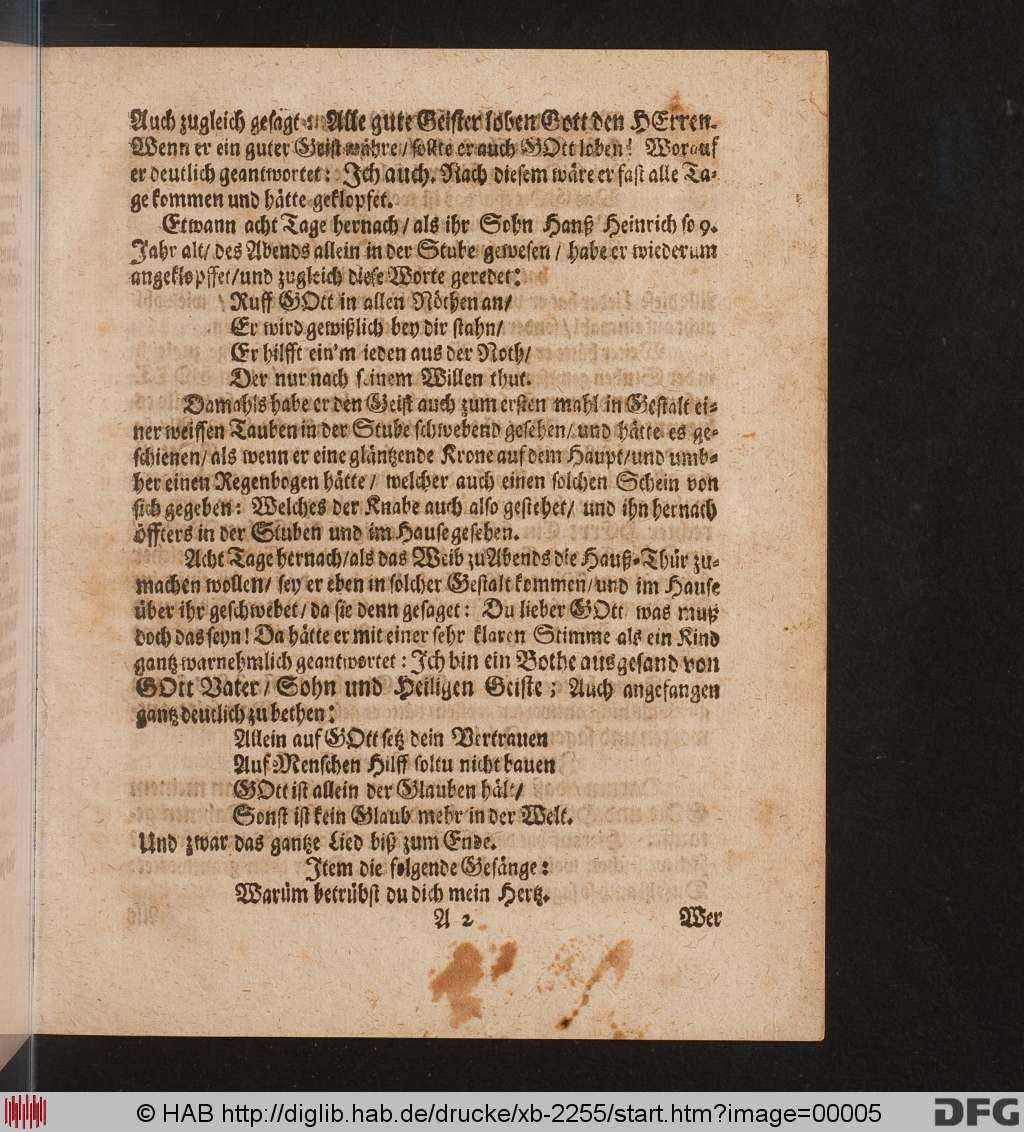 Auch zugleich gesagt: Alle gute Geister loben Gott den HErren.
Wenn er ein guter Geist währe/ sollte er auch GOtt loben! Worauf
er deutlich geantwortet: Ich auch. Nach diesem wäre er fast alle Ta-
ge kommen und hätte geklopfet.
Etwann acht Tage hernach/ als ihr Sohn Hanß Heinrich so 9.
Jahr alt/ des Abends allein in der Stube gewesen/ habe er wiederum
angeklopffet/ und zugleich diese Worte geredet:
Ruff GOtt in allen Nöthen an/
Er wird gewißlich bey dir stahn/
Er hilfft ein'm ieden aus der Noth/
Der nur nach seinem Willen thut.
Damahls habe er den Geist auch zum ersten mahl in Gestalt ei-
ner weissen Tauben in der Stube schwebend gesehen/ und hätte es ge-
schienen/ als wenn er eine gläntzende Krone auf dem Haupt/ und umb-
her einen Regenbogen hätte/ welcher auch einen solchen Schein von
sich gegeben: Welches der Knabe auch also gestehet/ und ihn hernach
öffters in der Stuben und im Hause gesehen.
Acht Tage hernach/ als das Weib zu Abends die Hauß-Thür zu-
machen wollen/ sey er eben in solcher Gestalt kommen/ und im Hause
über ihr geschwebet/ da sie denn gesaget: Du lieber GOtt was muß
doch das seyn! Da hätte er mit einer sehr klaren Stimme als ein Kind
gantz warnehmlich geantwortet: Ich bin ein Bothe ausgesand von
GOtt Vater/ Sohn und Heiligen Geiste; Auch angefangen
gantz deutlich zu bethen:
Allein auf GOtt setz dein Vertrauen
Auf Menschen Hilff soltu nicht bauen
GOtt ist allein der Glauben hält/
Sonst ist kein Glaub mehr in der Welt.
Und zwar das gantze Lied biß zum Ende.
Item die folgende Gesänge:
Warüm betrübst du dich mein Hertz.
A 2 Wer
© HAB http://diglib.hab.de/drucke/xb-2255/start.htm?image=00005
DFG